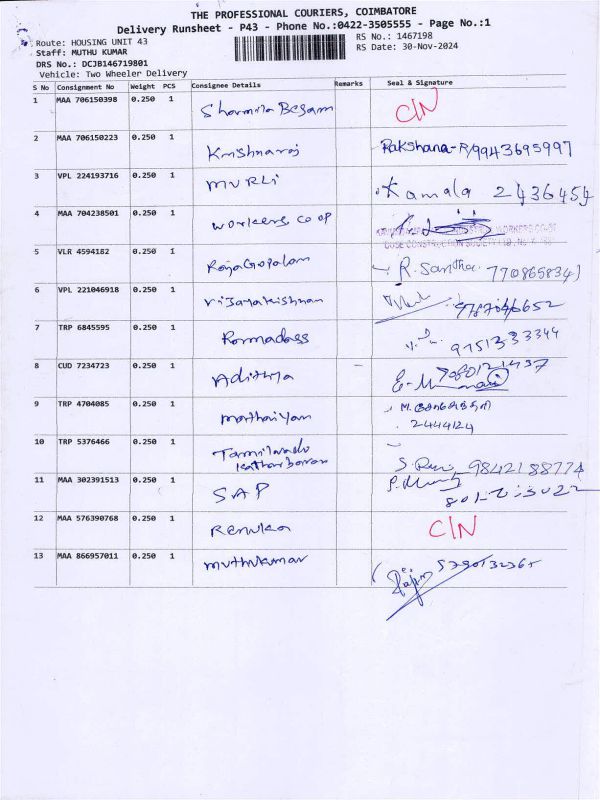 THE PROFESSIONAL COURIERS, COIMBATORE
Delivery Runsheet - P43 - Phone No.:0422-3505555 - Page No.:1
Route: HOUSING UNIT 43
RS No.: 1467198
Staff: MUTHU KUMAR
RS Date: 30-Nov-2024
DRS No.: DCJB146719801
Vehicle: Two Wheeler Delivery
S No Consignment No Weight PCS Consignee Details Remarks Seal & Signature
1 MAA 706150398 0.250 1 Sharmila Begam C/N
2 MAA 706150223 0.250 1 Krishnaraj Rakshana-R/9943695997
3 VPL 224193716 0.250 1 MURLi Kamala 2436454
4 MAA 704238501 0.250 1 workers co op
WORKERS CO-OP
5 VLR 4594182 0.250 1 RajaGopalan R. Santha 7708658341
6 VPL 221046918 0.250 1 vijayakrishnan
7 TRP 6845595 0.250 1 Ramadass 9751333344
8 CUD 7234723 0.250 1 Adithya
9 TRP 4704085 0.250 1 mathaiyan M.
2444124
10 TRP 5376466 0.250 1 Tamilnadu
S. 9842188774
11 MAA 302391513 0.250 1 SAP
12 MAA 576390768 0.250 1 Renuka C/N
13 MAA 866957011 0.250 1 muthukumar